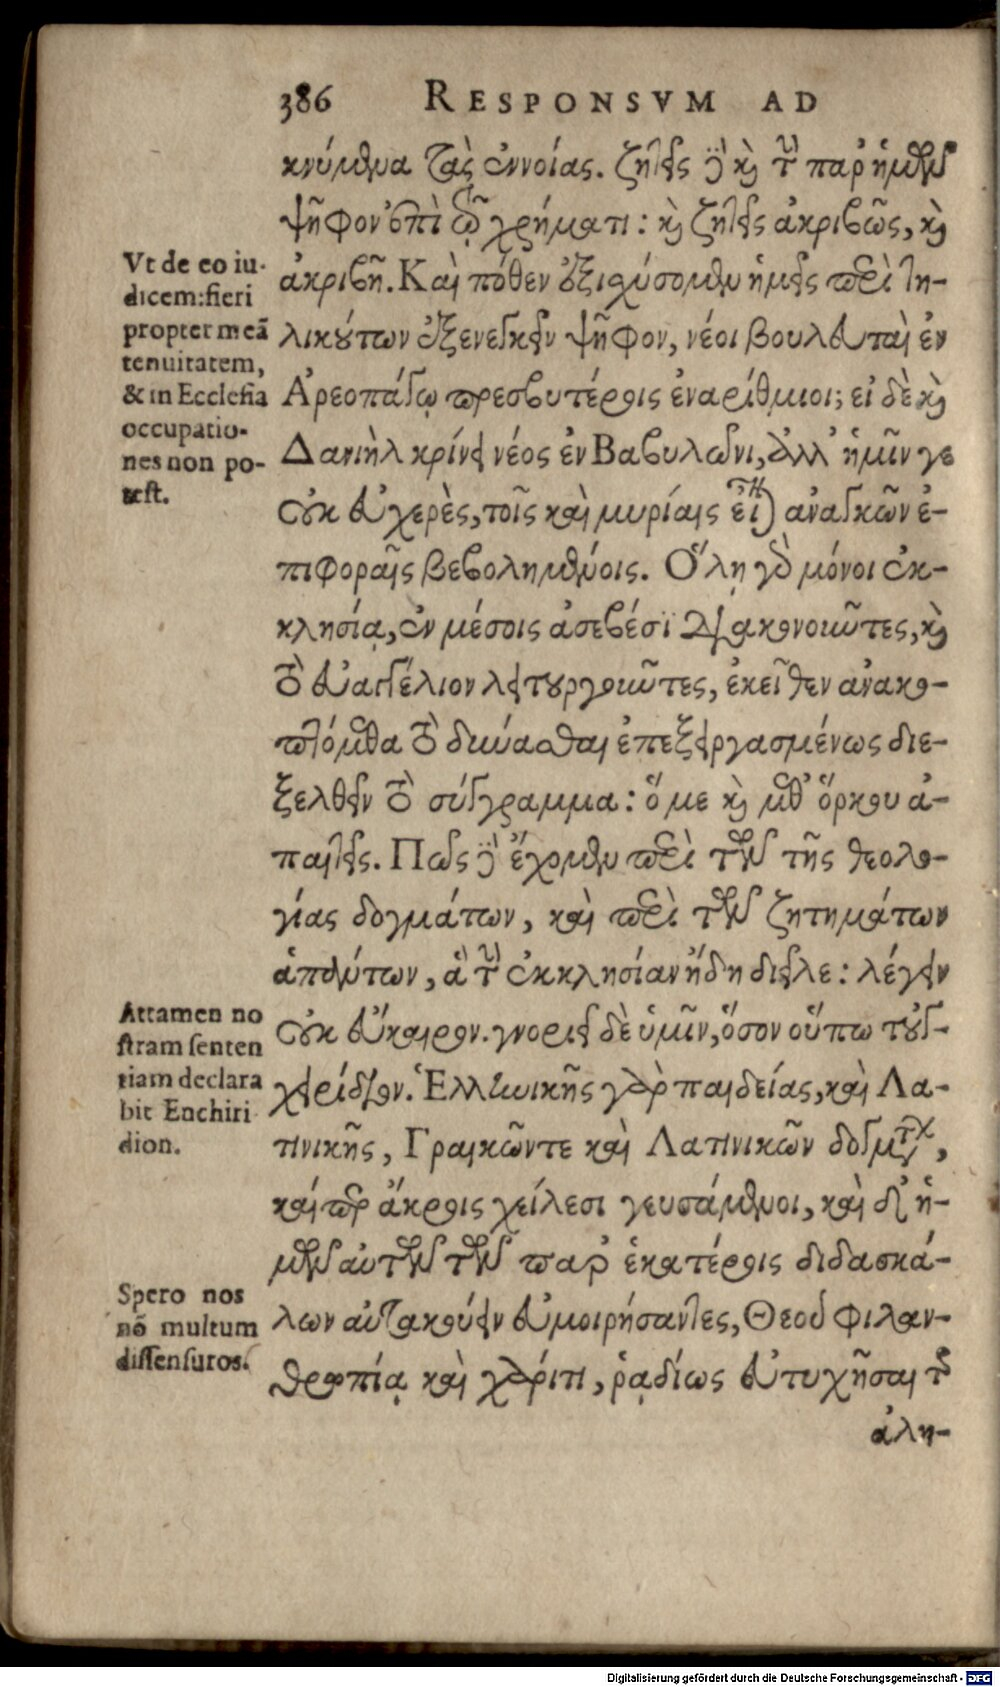 386 RESPONSVM AD
κνύμενα τὰς ἐννοίας. ζητεῖς δὲ καὶ τὴν παρ' ἡμῶν
ψῆφον ἐπὶ τῷ χρήματι: καὶ ζητεῖς ἀκριβῶς, καὶ
ἀκριβῆ. Καὶ πόθεν ἐξιχύσομεν ἡμεῖς περὶ τη-
λικούτων ἐξενεγκεῖν ψῆφον, νέοι βουλευταὶ ἐν
Ἀρεοπάγῳ πρεσβυτέροις ἐναρίθμιοι; εἰ δὲ καὶ
Δανιὴλ κρίνει νέος ἐν Βαβυλῶνι, ἀλλ' ἡμῖν γε
οὐκ εὐχερὲς, τοῖς καὶ μυρίαις ἐτι ἀναγκῶν ἐ-
πιφοραῖς βεβολημένοις. Ὅλῃ γὰρ μόνοι ἐκ-
κλησίᾳ, ἐν μέσοις ἀσεβέσι διακονοῦντες, καὶ
τὸ εὐαγγέλιον λειτουργοῦντες, ἐκεῖθεν ἀνακο-
πτόμεθα τὸ δύνασθαι ἐπεξειργασμένως διε-
ξελθεῖν τὸ σύγγραμμα: ὅ με καὶ μεθ' ὅρκου ἀ-
παιτεῖς. Πῶς δὲ ἔχομεν περὶ τῶν τῆς θεολο-
γίας δογμάτων, καὶ περὶ τῶν ζητημάτων
ἁπάντων, ἃ τὴν ἐκκλησίαν ἤδη διεῖλε: λέγειν
οὐκ εὔκαιρον. γνοριεῖ δὲ ὑμῖν, ὅσον οὔπω τοὐγ-
χειρίδιον. Ἑλληνικῆς γὰρ παιδείας, καὶ Λα-
τινικῆς, Γραικῶντε καὶ Λατινικῶν δογμάτων,
καίπερ ἄκροις χείλεσι γευσάμενοι, καὶ δι' ἡ-
μῶν αὐτῶν τῶν παρ' ἑκατέροις διδασκά-
λων αὐτακούειν εὐμοιρήσαντες, Θεοῦ φιλαν-
θρωπίᾳ καὶ χάριτι, ῥᾳδίως εὐτυχῆσαι τῆς
ἀλη-
Vt de eo iu-
dicem: fieri
propter meã
tenuitatem,
& in Ecclesia
occupatio-
nes non po-
test.
Attamen no
stram senten
tiam declara
bit Enchiri
dion.
Spero nos
nõ multum
dissensuros.
Digitalisierung gefördert durch die Deutsche Forschungsgemeinschaft - DFG